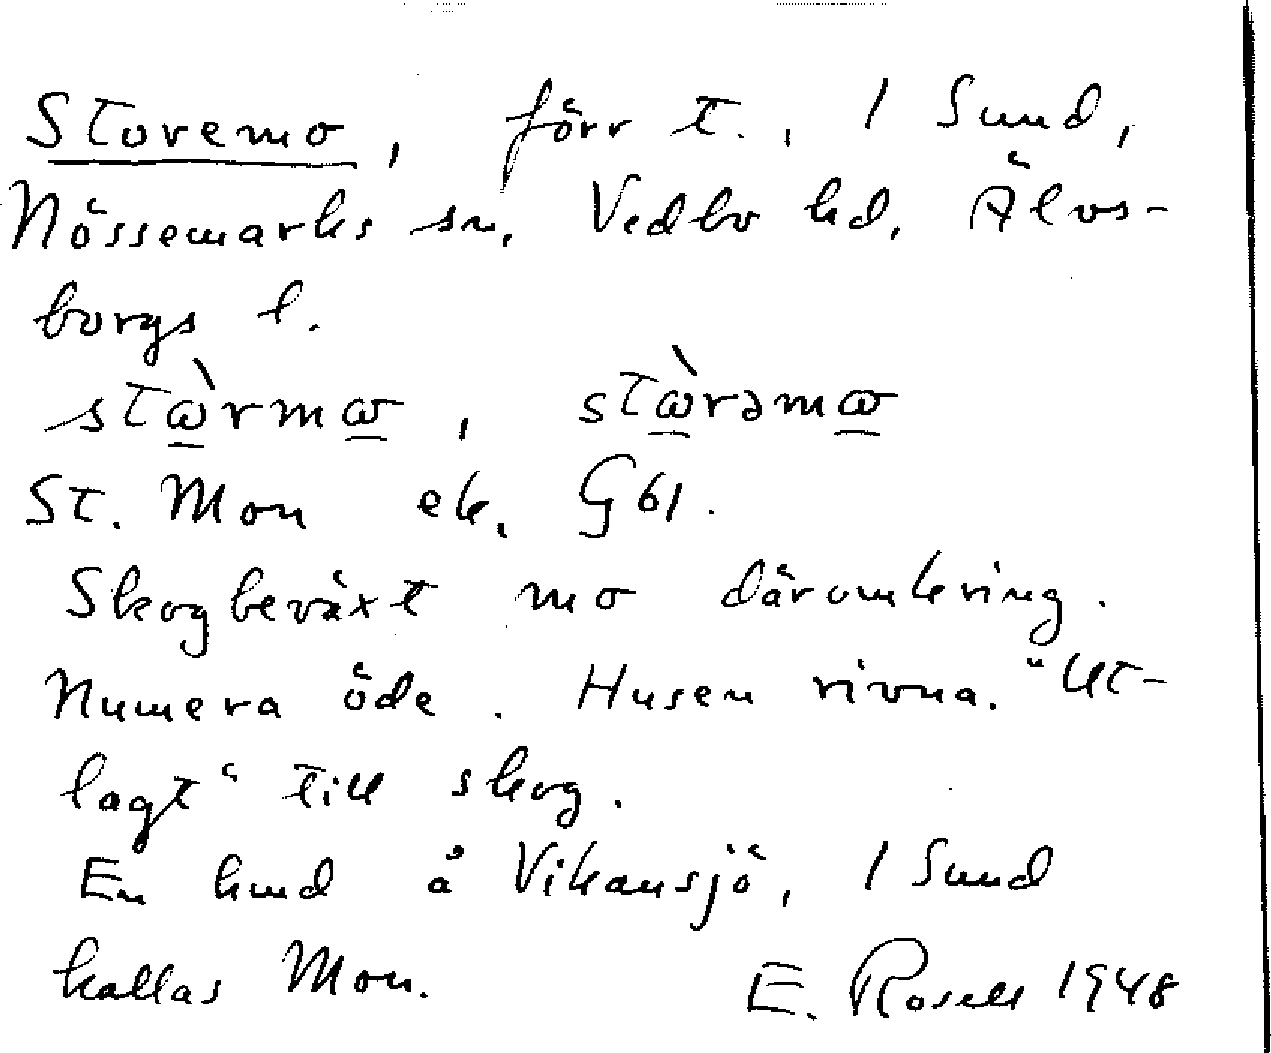 Storemo, förr t., 1 Sund,
Nössemarks sn, Vedbo hd, Älvs-
borgs l.
stὼ̲rmω̲, stὼ̲rəmω̲
St. Mon ek. G 61.
Skogbeväxt mo däromkring.
Numera öde. Husen rivna. "Ut-
lagt" till skog.
En hmd å Vikansjö, 1 Sund
kallas Mon. E. Rosell 1948